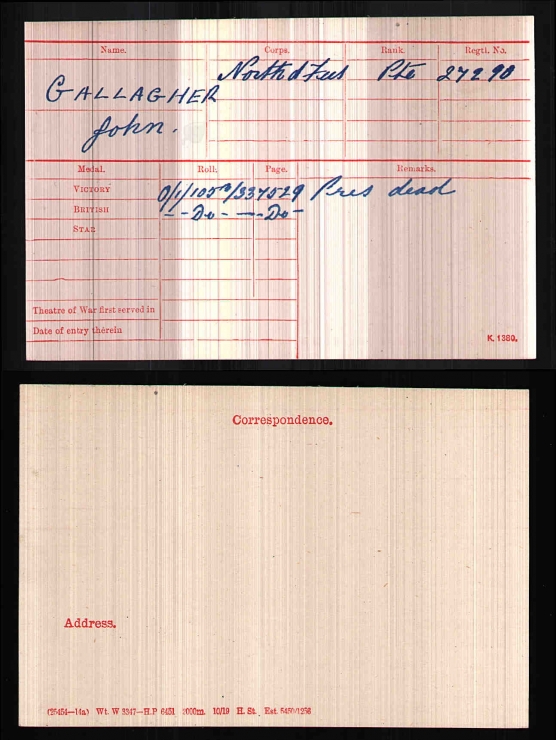 Name. Corps. Rank. Regtl. No.
GALLAGHER North'd Fus Pte 27290
John.
Medal. Roll. Page. Remarks.
VICTORY 33475 Pres dead
BRITISH - - Do - - - Do -
STAR
Theatre of War first served in
Date of entry therein
K. 1380.
Correspondence.
Address.
(25454—14a) Wt. W 3347—H.P 6451 2000m. 10/19 H. St. Est. 5450/1256